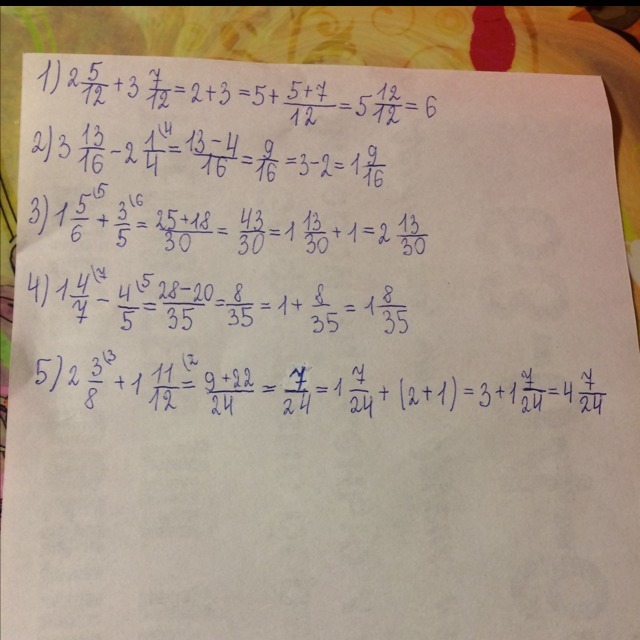 1) 2 5/12 + 3 7/12 = 2+3 = 5 + (5+7)/12 = 5 12/12 = 6
2) 3 13/16 - 2 1\4/4 = (13-4)/16 = 9/16 = 3-2 = 1 9/16
3) 1 5\5/6 + 3\6/5 = (25+18)/30 = 43/30 = 1 13/30 + 1 = 2 13/30
4) 1 4\7/7 - 4\5/5 = (28-20)/35 = 8/35 = 1 + 8/35 = 1 8/35
5) 2 3\3/8 + 1 11\2/12 = (9+22)/24 = 7/24 = 1 7/24 + (2+1) = 3 + 1 7/24 = 4 7/24